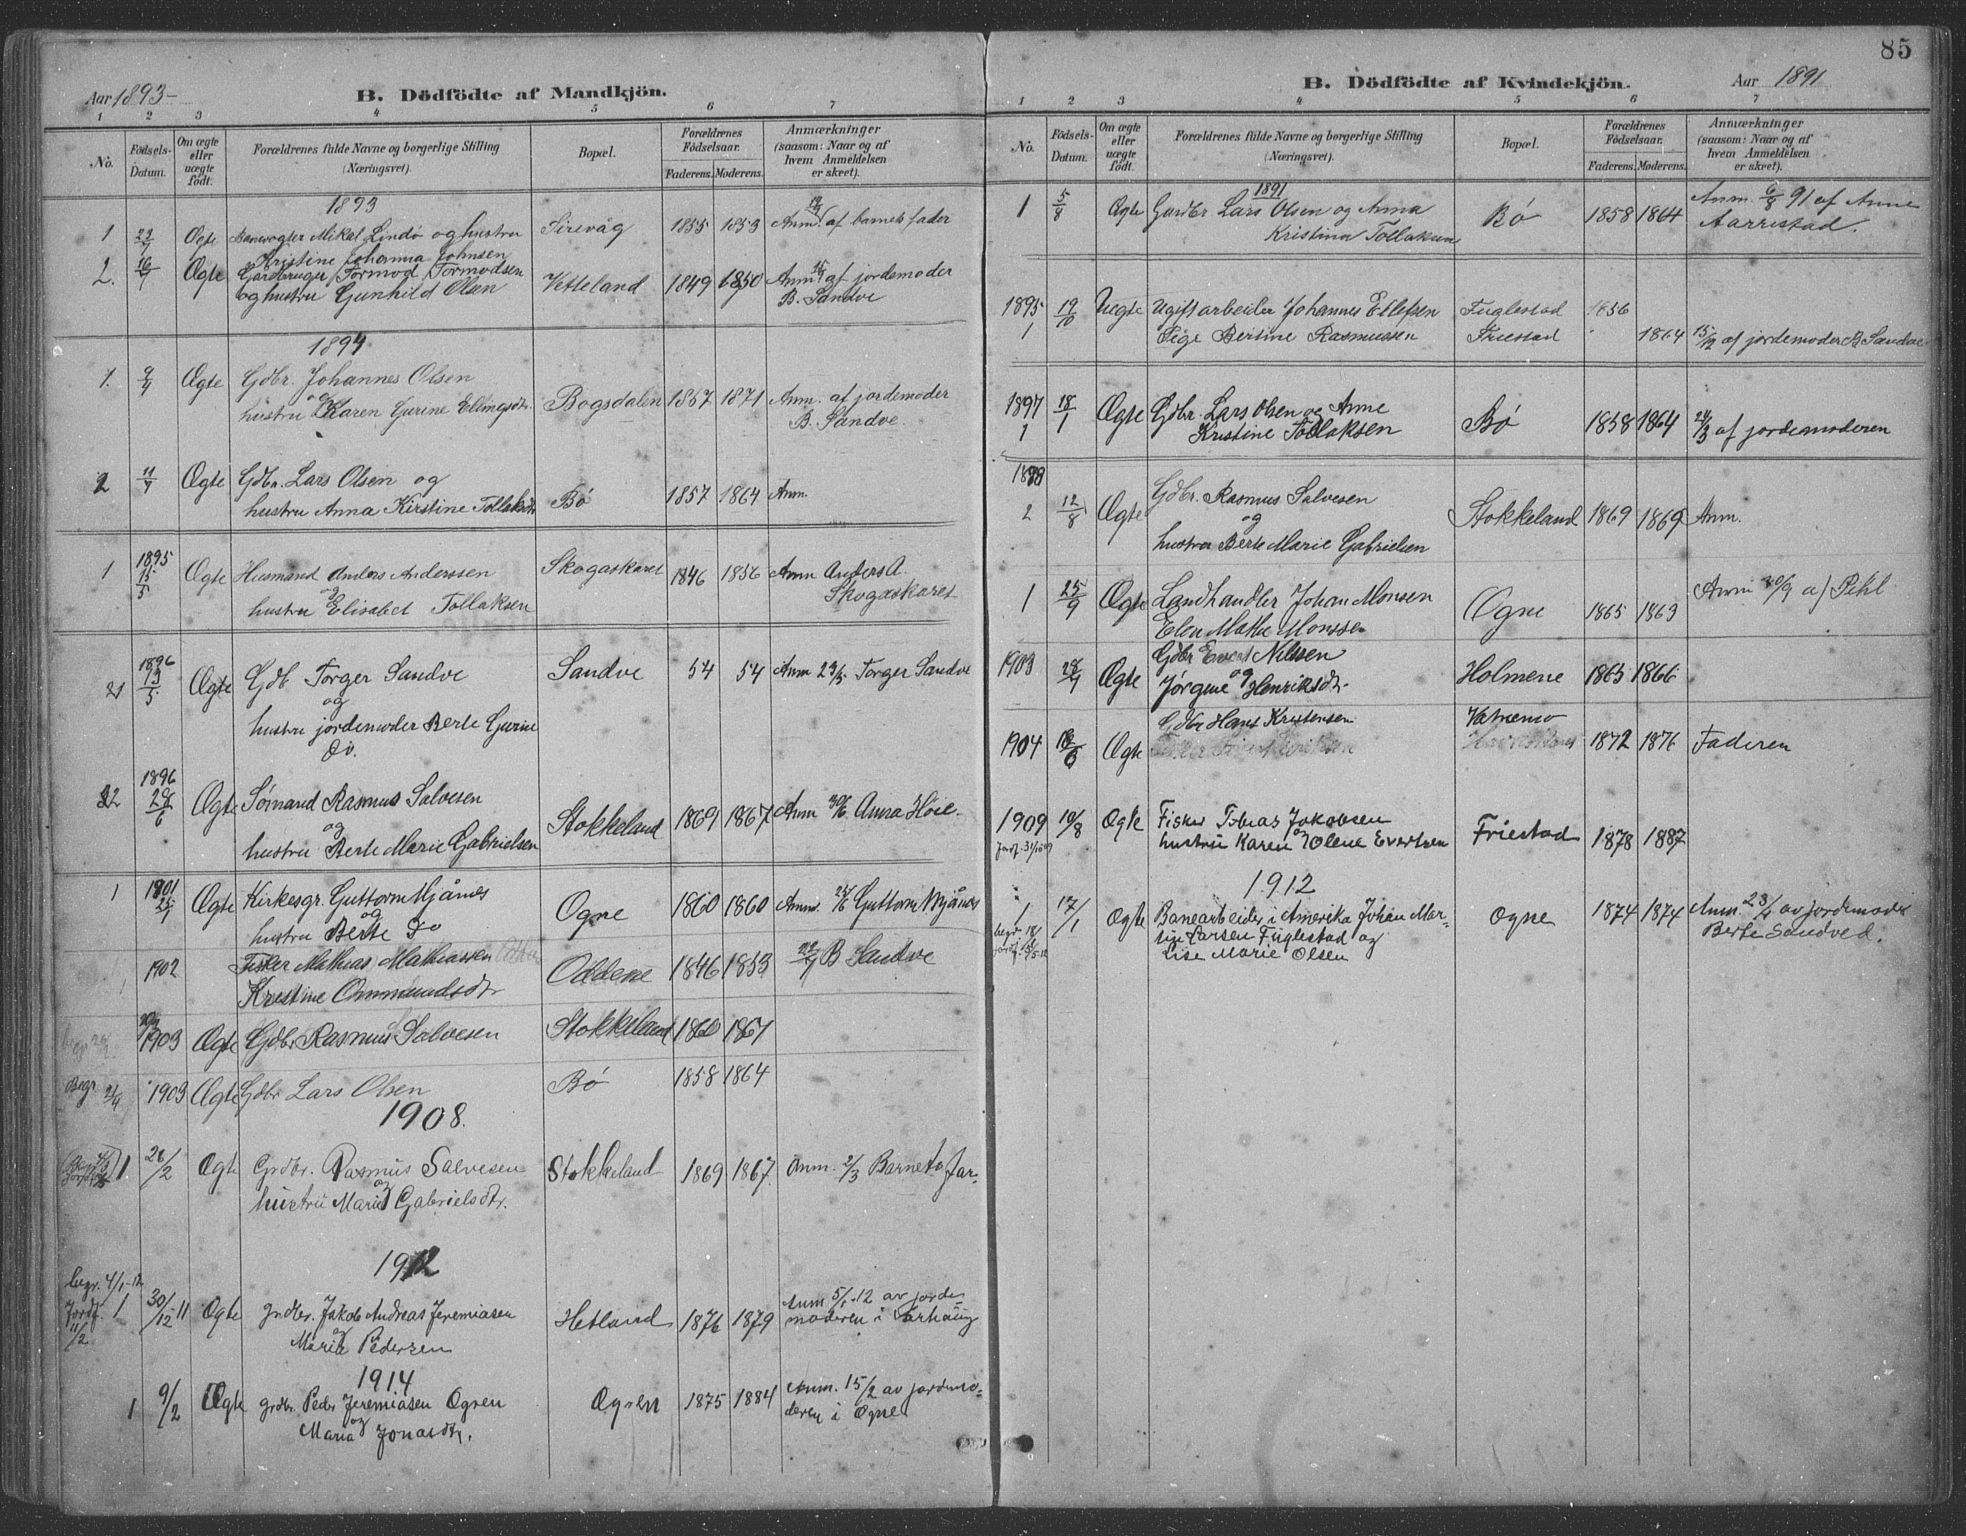 Aar 1893-
B. Dödfödte af Mandkjön.
1 2 3 4 5 6 7
No. Födsels-Datum. Om ægte eller uægte födt. Forældrenes fulde Navne og borgerlige Stilling (Næringsvei). Bopæl. Forældrenes Födselsaar. Faderens. Moderens. Anmærkninger (saasom: Naar og af hvem Anmeldelsen er skeet).
1893
1 Ægte Banevogter Mikal Lindø og hustru Sirevåg 1855 1853 Anm. af barnets fader
Kristine Johanna Johnsen
2. Ægte Gårdbruger Tormod Tormodsen Vetteland 1849 1850 Anm. af jordemoder
og hustru Gunhild Olsen B. Sandve
1894
1. Ægte Gdbr. Johannes Olsen
og hustru Karen Gurine Ellingsdtr. Bogsdalen 1867 1871 Anm. af jordemoder
B. Sandve.
2 Ægte Gdbr. Lars Olsen og
hustru Anna Kirstine Tollaksdtr Bø 1857 1864 Anm.
1 1895 15/5 Ægte Husmand Anders Anderssen Skogaskaret 1846 1856 Anm Anders A.
og
hustru Elisabet Tollaksen Skogaskaret
1896 Ægte Gdb Torger Sandve Sandve 54 54 Anm Torger Sandve
og
hustru jordemoder Berte Gurine
Do.
1896 Ægte Sømand Rasmus Salvesen Stokkeland 1869 1867 Anm Anna Høie.
og
hustru Berte Marie Gabrielsen
1 1901 Ægte Kirkesgr. Guttorm Mjånes Ogne 1860 1860 Anm. Guttorm Mjånes
og
hustru Berte Do
1902 Fisker Mathias Mathiassen Oddene 1846 1853 B Sandve
Kristine Ommundsdtr
1903 Ægte Gdbr Rasmus Salvesen Stokkeland
Begr. 1903 Ægte Gdbr Lars Olsen Bø 1858 1864
1908.
1 26/2 Ægte Grdbr. Rasmus Salvesen Stokkeland 1869 1867 Anm. 2/3 Barnets far-
og
hustru Marie Gabrielsdtr.
1912
begr. 4/1-12
Jordf. 11/2 1 30/12-11 Ægte grdbr. Jakob Andreas Jeremiasen Hetland 1876 1879 Anm. 5/1-12 av jorde-
moderen i Varhaug
og
Maria Pedersen
1914
1 9/2 Ægte grdbr. Peder Jeremiasen Ognen Ognen 1875 1884 Anm. 15/2 av jordemo-
deren i Ogne
og
Maria Jonasdtr.
85
B. Dödfödte af Kvindekjön. Aar 1891
1 2 3 4 5 6 7
No. Födsels-Datum. Om ægte eller uægte födt. Forældrenes fulde Navne og borgerlige Stilling (Næringsvei). Bopæl. Forældrenes Födselsaar. Faderens. Moderens. Anmærkninger (saasom: Naar og af hvem Anmeldelsen er skeet).
1891
1 5/8 Ægte Gardbr Lars Olsen og Anna Bø 1858 1864 Anm. 6/8 91 af Anne
Kristina Tollaksen Aarrestad.
1895 19/10 Uegte Ugift arbeider Johannes Ellefsen Fuglestad 1856
1 Pige Bertine Rasmussen Friestad 1864 15/12 af jordemoder B. Sandve
1897 18/1 Ægte Gdbr. Lars Olsen og Anne Bø 1858 1864 af jordemoderen
1 Kristine Tollaksen
2 12/8 Ægte Gdbr. Rasmus Salvesen Stokkeland 1869 1869 Anm.
og
hustru Berte Marie Gabrielsen
1 25/9 Ægte Landhandler Johan Monsen Ogne 1865 1863 Anm 30/9 af Pihl
Elen Mathe Monssen
1903 Ægte Gdbr Evert Nilssen Holmene 1863 1866
og
Jørgine Henriksdtr.
1904 Ægte Gdbr Hans Kristensen Vatnemo 1872 1876 Faderen
1909 10/8 Ægte Fisker Tobias Jakobsen Friestad 1878 1887
og
hustru Karen Olene Evertsen
1912
1 17/1 Ægte Banearbeider i Amerika Johan Mar- Ogne 1874 1874 Anm. av jordemoder
sin Larsen Fuglestad og Berte Sandved.
Lise Marie Olsen